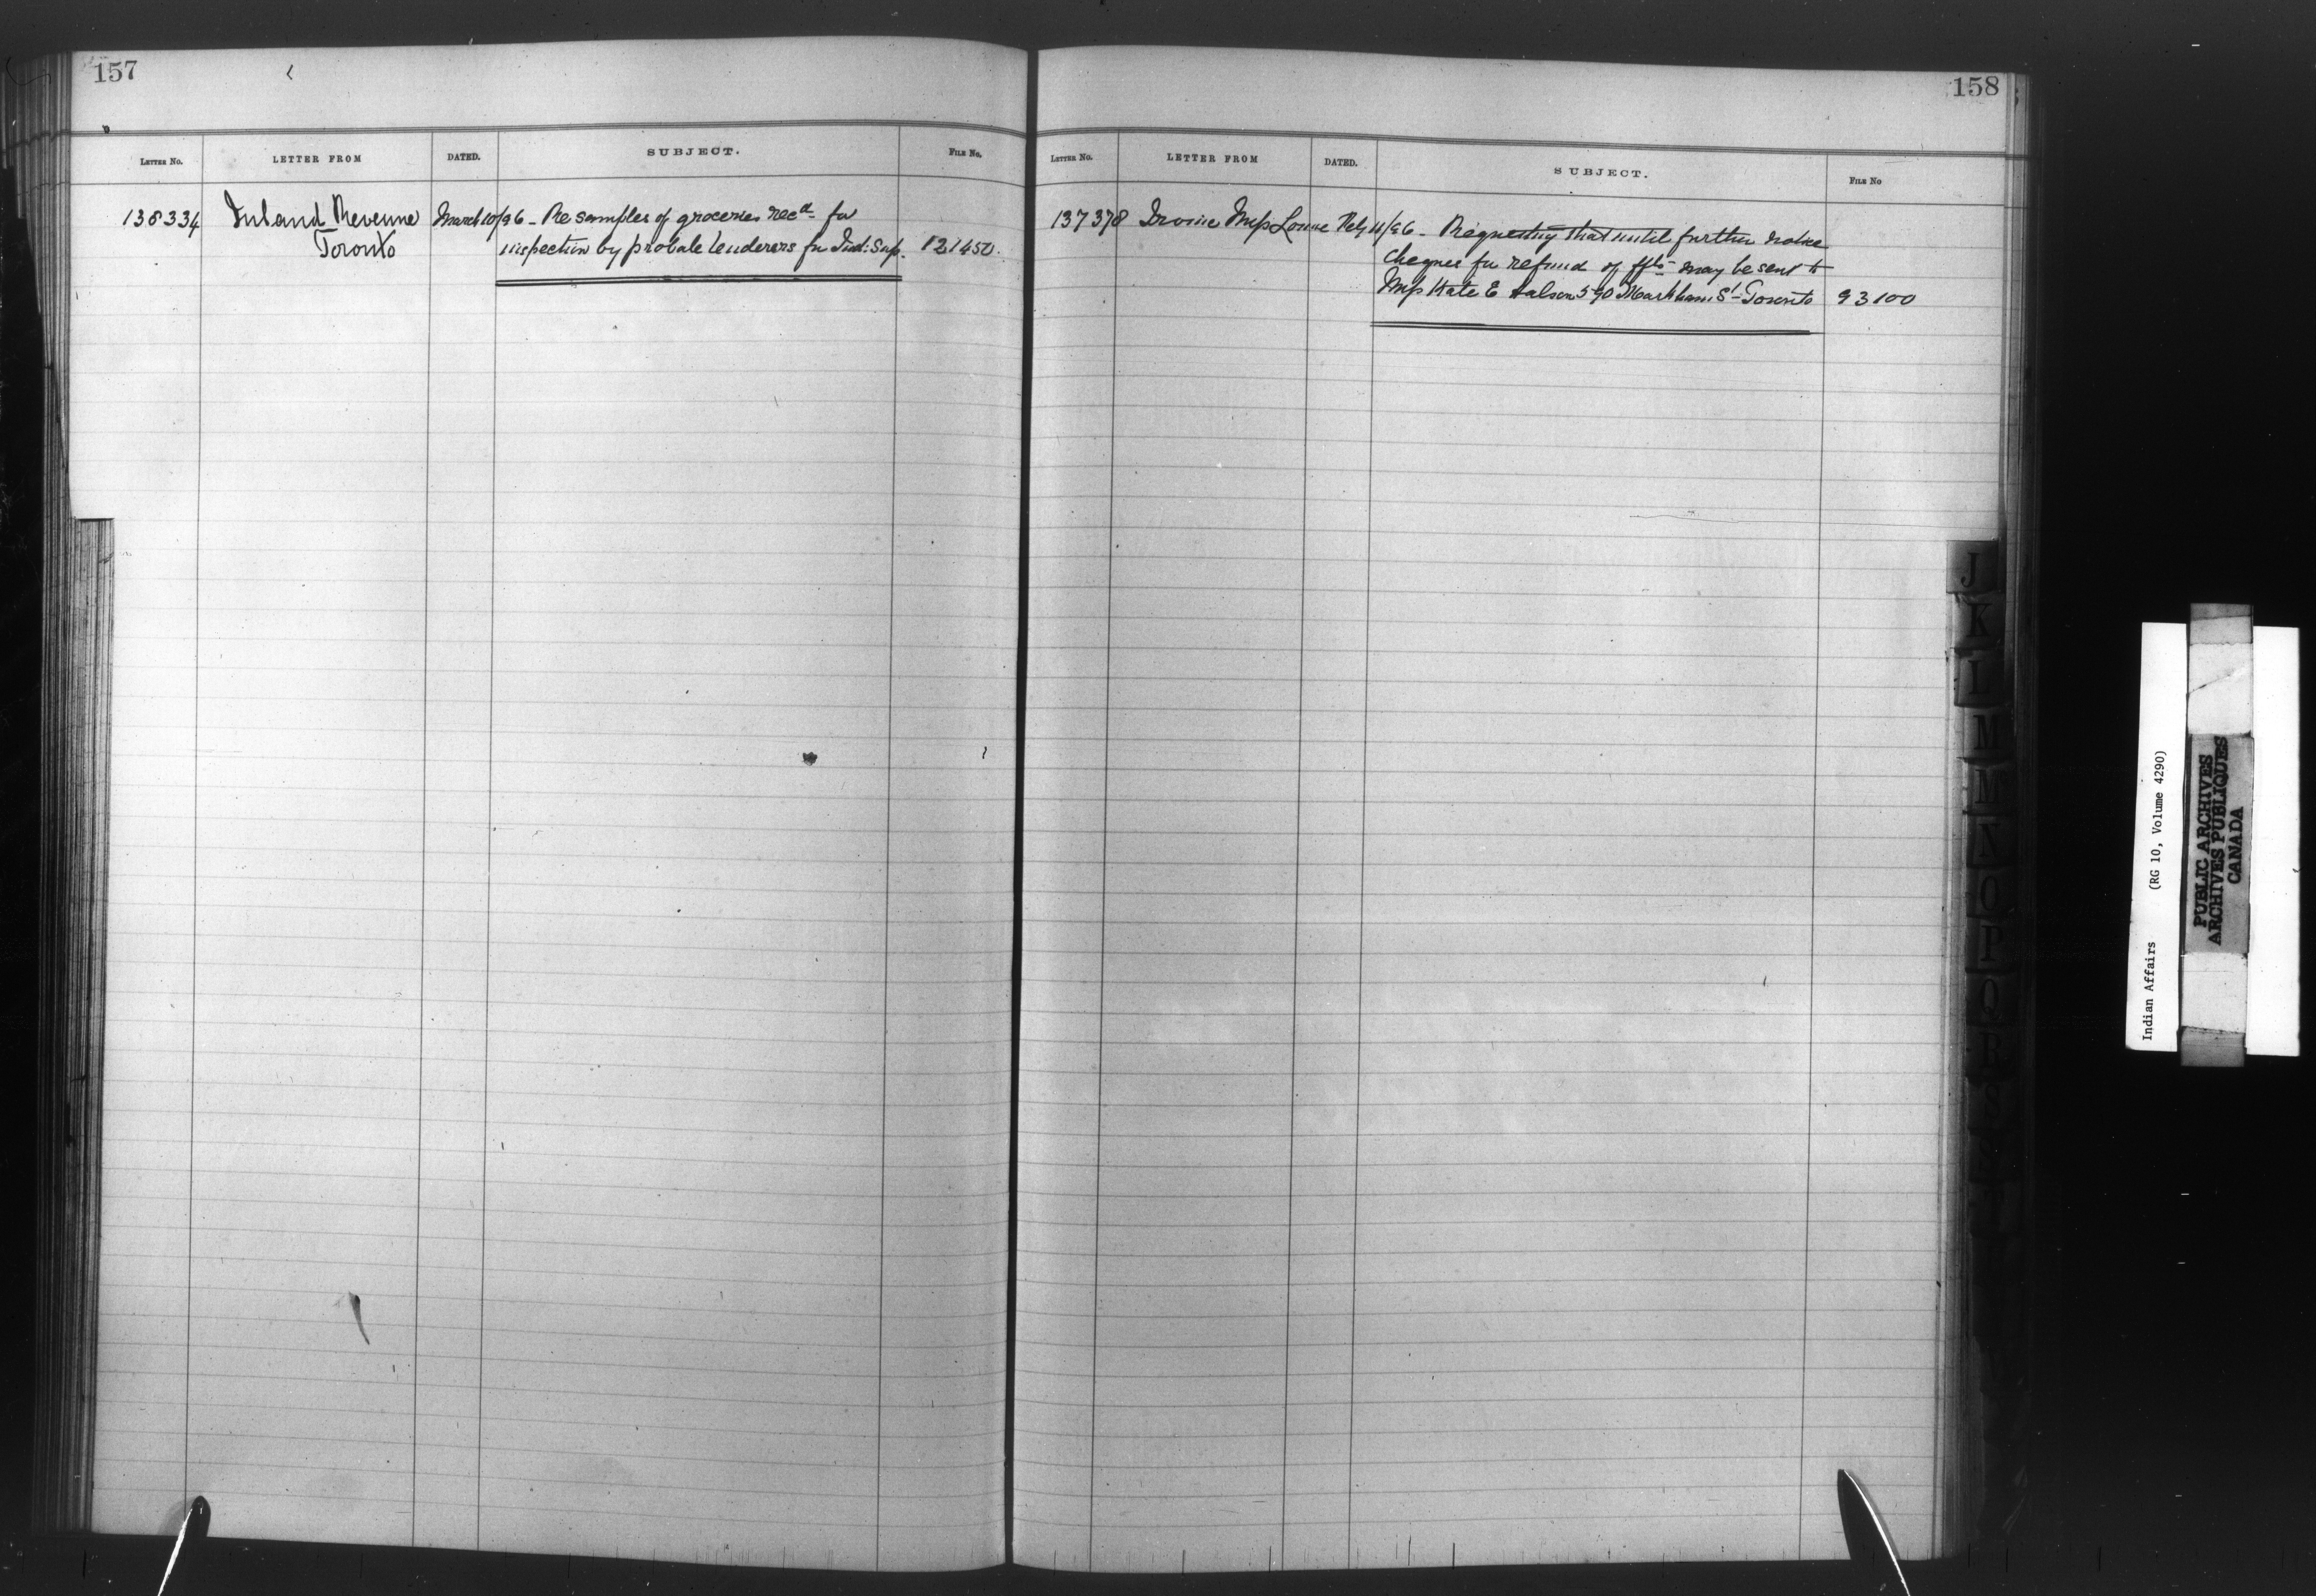 157
LETTER NO. LETTER FROM DATED. SUBJECT. FILE NO.
138334 Inland Revenue March 10/96 - Re samples of groceries recd for
Toronto inspection by probale tenderers for Ind: Sup. 121450.
158
LETTER NO. LETTER FROM DATED. SUBJECT. FILE NO
137378 Irvine Mrs Louise Feby 11/96 - Requesting that until further notice
cheques for refund of may be sent to
Mrs Kate E 590 Markham St Toronto 93100
J
K
L
M
M
N
O
P
Q
R
S
S
T
Indian Affairs (RG 10, Volume 4290)
PUBLIC ARCHIVES
ARCHIVES PUBLIQUES
CANADA